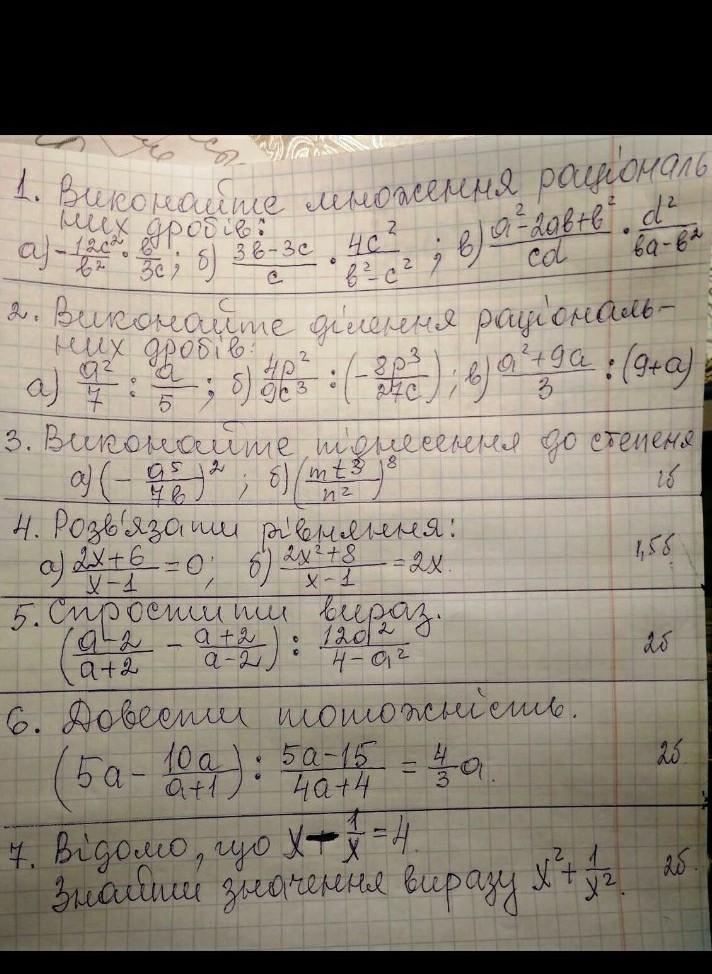 1. Виконайте множення раціональ
них дробів:
а) -12c²/b² · b/3c; б) (3b-3c)/c · 4c²/(b²-c²); в) (a²-2ab+b²)/cd · d²/(ba-b²)
2. Виконайте ділення раціональ-
них дробів:
а) a²/7 : a/5; б) 4p²/9c³ : (-8p³/27c); в) (a²+9a)/3 : (9+a)
3. Виконайте піднесення до степеня
а) (-a⁵/7b)²; б) (mt³/n²)⁸ 1б
4. Розв'язати рівняння:
а) (2x+6)/(x-1) = 0; б) (2x²+8)/(x-1) = 2x. 1,5б
5. Спростити вираз.
((a-2)/(a+2) - (a+2)/(a-2)) : 12a²/(4-a²) 2б
6. Довести тотожність.
(5a - 10a/(a+1)) : (5a-15)/(4a+4) = 4/3 a. 2б
7. Відомо, що x - 1/x = 4.
Знайти значення виразу x² + 1/x². 2б